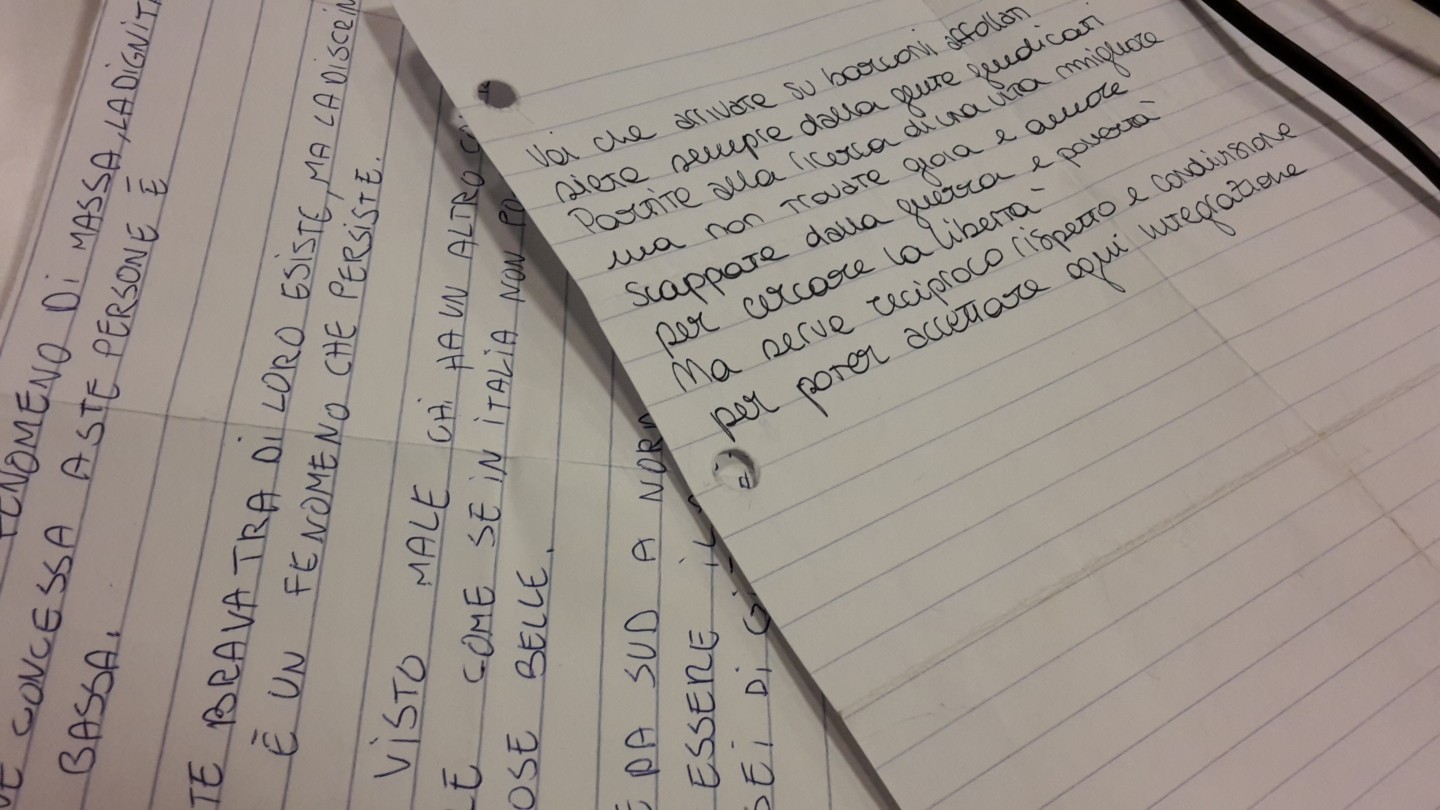 FENOMENO DI MASSA, LA DIGNITÀ
CONCESSA A STE PERSONE È
BASSA.
BRAVA TRA DI LORO ESISTE, MA LA DISCRIM
È UN FENOMENO CHE PERSISTE.
VISTO MALE CHI HA UN ALTRO
COME SE IN ITALIA NON
BELLE.
DA SUD A NORD
ESSERE IL
SEI DI
Voi che arrivate su barconi affollati
siete sempre dalla gente giudicati
Partite alla ricerca di una vita migliore
ma non trovate gioia e amore
scappate dalla guerra e povertà
per cercare la libertà
Ma serve reciproco rispetto e condivisione
per poter accettare ogni integrazione